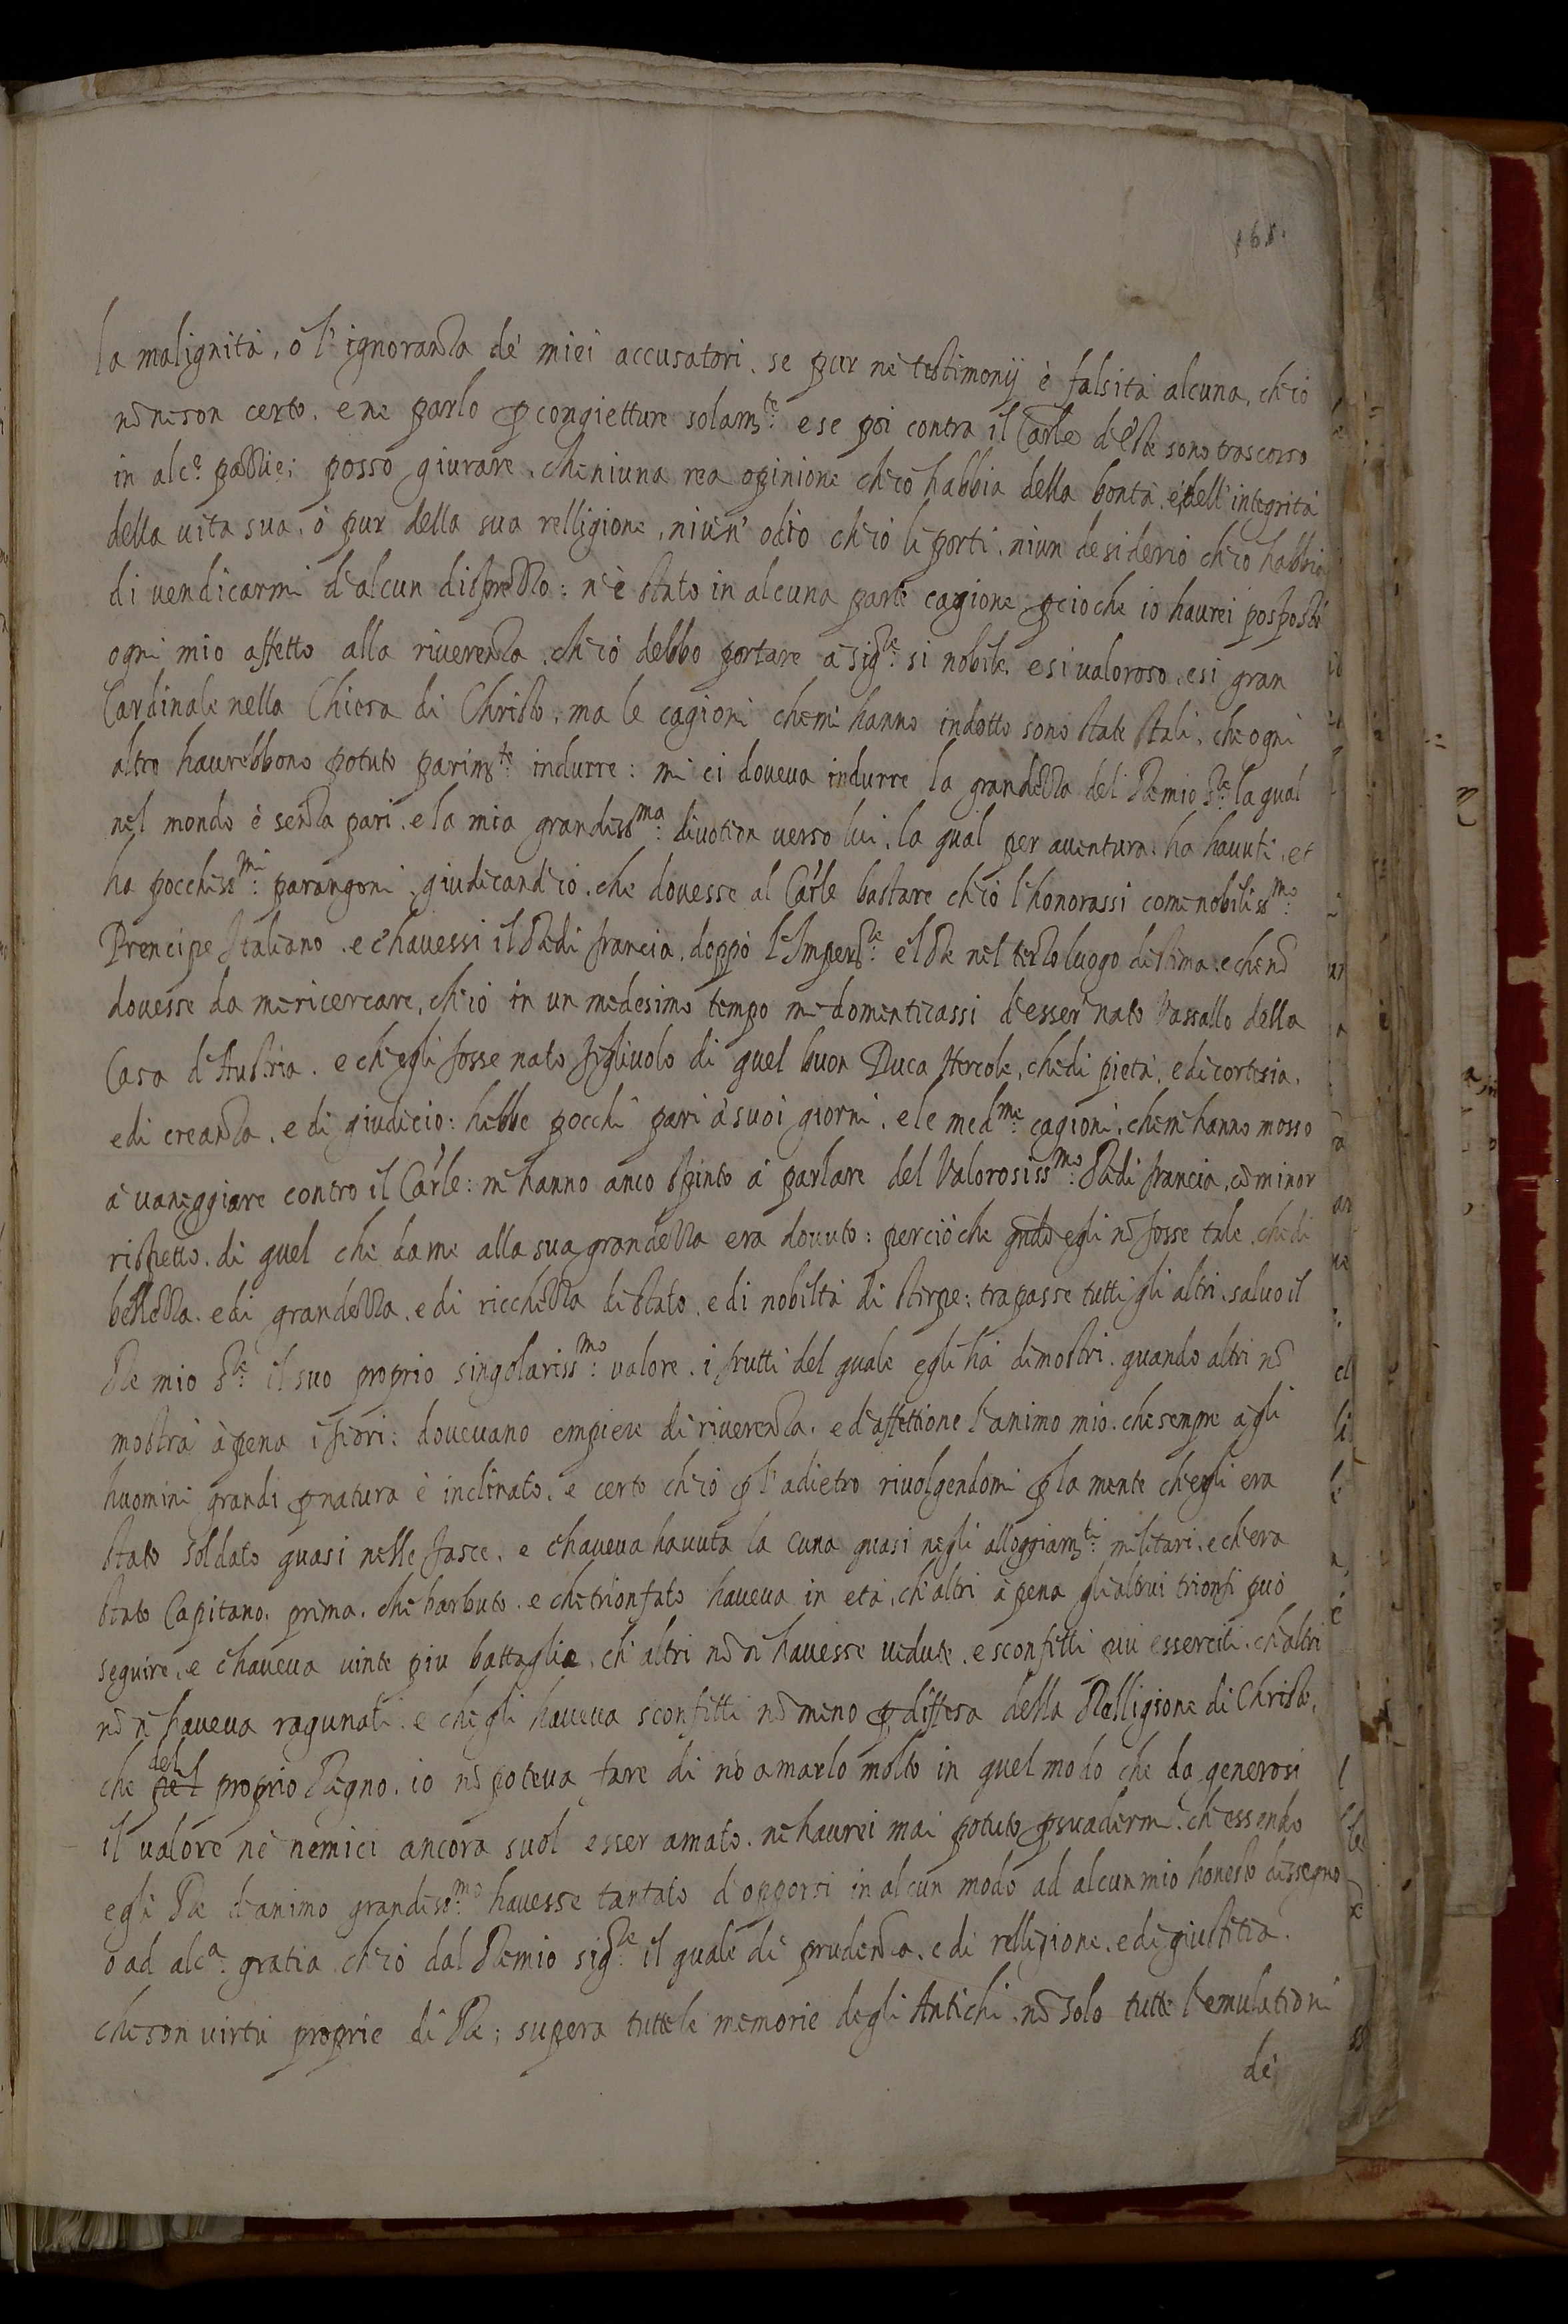 168.
la malignità, ò l'ignoranza de' miei accusatori. se pur ne testimonij è falsità alcuna, ch'io
nõ ne son certo. e ne parlo ꝑ congietture solam.te e se poi contra il Car.le d'Este sono trascorso
in alc.e pazzie; posso giurare, che niuna rea opinione ch'io habbia della bontà, e dell'integrità
della vita sua, ò pur della sua relligione, niun' odio ch'io le porti, niun desiderio ch'io habbia
di vendicarmi d'alcun disprezzo: n'è stato in alcuna parte cagione ꝑcioche io haurei posposto
ogni mio affetto alla riverenza, ch'io debbo portare à sig.re si nobile, e si valoroso, e si gran
Cardinale nella Chiesa di Christo, ma le cagioni che mi hanno indotto sono state tali, che ogni
altro haurebbono potuto parim.te indurre: mi ci doveva indurre la grandezza del Re mio S.re la qual
nel mondo è senza pari. e la mia grandiss.ma divotion verso lui, la qual per aventura ha havuti, et
ha pocchiss.mi parangoni, giudicand'io, che dovesse al Car.le bastare ch'io l'honorassi come nobiliss.mo
Prencipe Italiano. e c'havessi il Re di francia, doppò l'Imper.re e'l Re nel terzo luogo di stima. e che nõ
dovesse da me ricercare, ch'io in un medesimo tempo mi domenticassi d'esser nato Vassallo della
Casa d'Austria. e ch'egli fosse nato figliuolo di quel buon Duca Hercole, che di pietà, e di cortesia,
e di creanza, e di giudicio: hebbe pocchi pari à suoi giorni. e le med.me cagioni, che m'hanno mosso
à vaneggiare contro il Car.le: m'hanno anco spinto à parlare del Valorosiss.mo Re di francia, cõ minor
rispetto di quel che da me alla sua grandezza era dovuto: perciòche qñdo egli nõ fosse tale, che di
bellezza, e di grandezza, e di ricchezza di stato, e di nobiltà di stirpe; trapasse tutti gli altri, salvo il
Re mio S.re il suo proprio singolariss.mo valore, i frutti del quale egli hà dimostri, quando altri nõ
mostra à pena i fiori: dovevano empiere di riverenza, e d'affettione l'animo mio, che sempre à gli
huomini grandi ꝑ natura è inclinato. e certo ch'io ꝑ l'adietro rivolgendomi ꝑ la mente ch'egli era
stato soldato quasi nelle fasce, e c'haveva havuta la cuna quasi negli alloggiam.ti militari, e ch'era
stato Capitano, prima, che barbuto. e che trionfato haveva in età, ch'altri à pena gli altrui trionfi può
seguire, e c'haveva vinte piu battaglie, ch'altri nõ n'havesse vedute. e sconfitti piu esserciti, ch'altri
nõ n'haveva ragunati. e che gli haveva sconfitti nõ meno ꝑ diffesa della Relligione di Christo,
che pel del proprio Regno. io nõ poteva fare di nõ amarlo molto in quel modo che da generosi
il valore nè nemici ancora suol esser amato. nè haurei mai potuto ꝑsuadermi, ch'essendo
egli Re d'animo grandiss.mo havesse tantato d'opporsi in alcun modo ad alcun mio honesto dissegno
ò ad alc.a gratia ch'io dal Re mio sig.re il quale di prudenza, e di relligione, e di giustitia,
che son virtù proprie di Re; supera tutte le memorie degli Antichi, nõ solo tutte l'emulationi
de